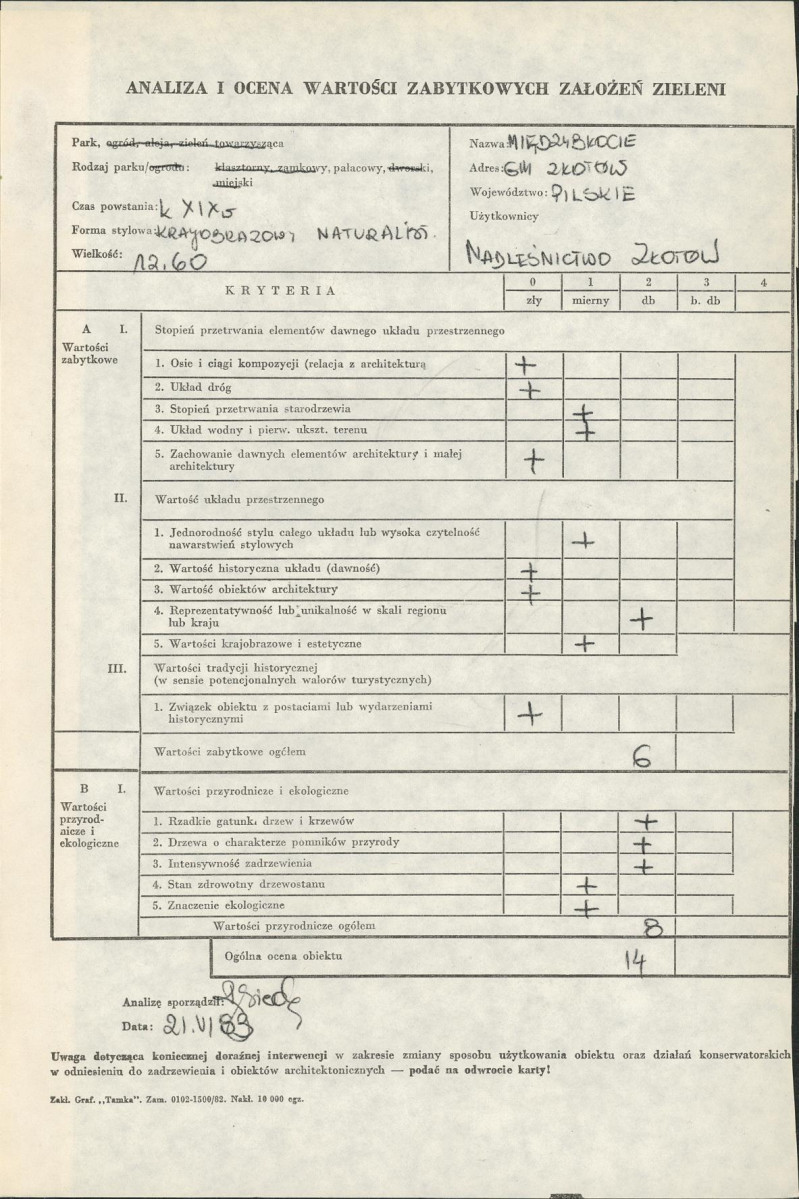 ANALIZA I OCENA WARTOŚCI ZABYTKOWYCH ZAŁOŻEŃ ZIELENI
Park, ogród, aleja, zieleń towarzysząca
Rodzaj parku/ogrodu: klasztorny, zamkowy, pałacowy, dworski,
miejski
Czas powstania: k XIX w
Forma stylowa: KRAJOBRAZOWY NATURALIST.
Wielkość: 12.60
Nazwa: MIĘDZYBŁOCIE
Adres: GM ZŁOTÓW
Województwo: PILSKIE
Użytkownicy
NADLEŚNICTWO ZŁOTÓW
KRYTERIA
0 1 2 3 4
zły mierny db b. db
A I. Stopień przetrwania elementów dawnego układu przestrzennego
Wartości
zabytkowe
1. Osie i ciągi kompozycji (relacja z architekturą +
2. Układ dróg +
3. Stopień przetrwania starodrzewia +
4. Układ wodny i pierw. ukszt. terenu +
5. Zachowanie dawnych elementów architektury i małej
architektury +
II. Wartość układu przestrzennego
1. Jednorodność stylu całego układu lub wysoka czytelność
nawarstwień stylowych +
2. Wartość historyczna układu (dawność) +
3. Wartość obiektów architektury +
4. Reprezentatywność lub unikalność w skali regionu
lub kraju +
5. Wartości krajobrazowe i estetyczne +
III. Wartości tradycji historycznej
(w sensie potencjonalnych walorów turystycznych)
1. Związek obiektu z postaciami lub wydarzeniami
historycznymi +
Wartości zabytkowe ogółem 6
B I. Wartości przyrodnicze i ekologiczne
Wartości
przyrod-
nicze i
ekologiczne
1. Rzadkie gatunki drzew i krzewów +
2. Drzewa o charakterze pomników przyrody +
3. Intensywność zadrzewienia +
4. Stan zdrowotny drzewostanu +
5. Znaczenie ekologiczne +
Wartości przyrodnicze ogółem 8
Ogólna ocena obiektu 14
Analizę sporządził:
Data: 21.VI 83
Uwaga dotycząca koniecznej doraźnej interwencji w zakresie zmiany sposobu użytkowania obiektu oraz działań konserwatorskich
w odniesieniu do zadrzewienia i obiektów architektonicznych — podać na odwrocie karty!
Zakł. Graf. „Tamka". Zam. 0102-1500/82. Nakł. 10 000 egz.